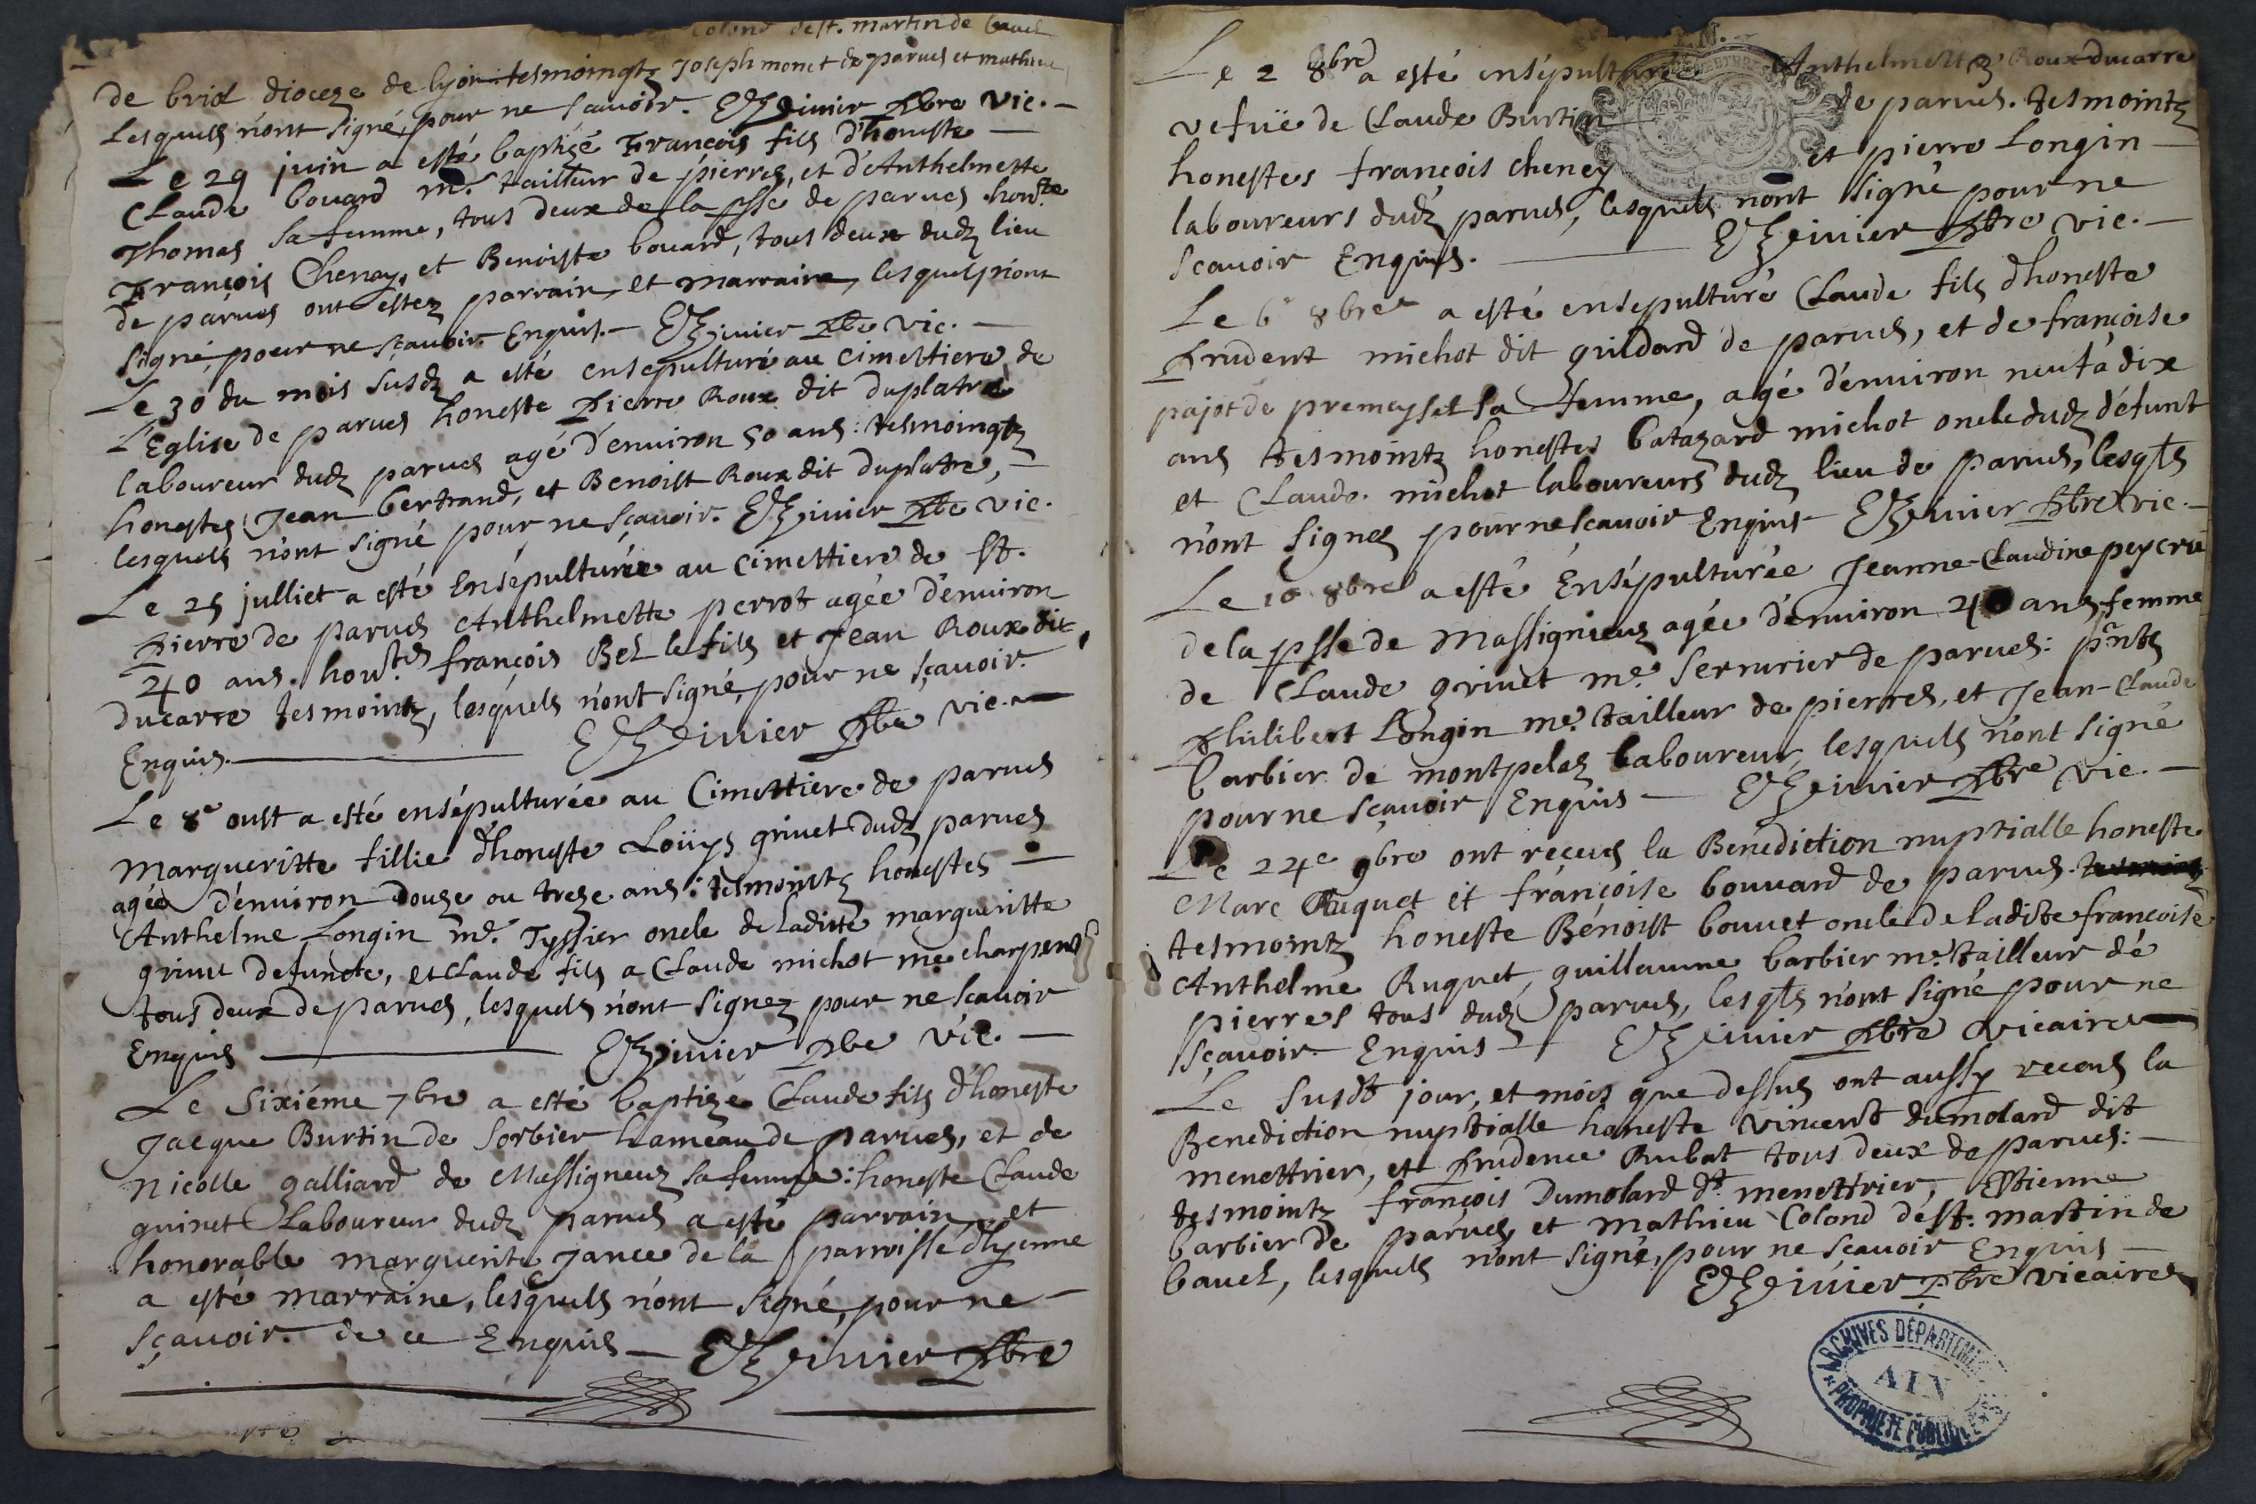 Colond de st. martin de bavel
de brid dioceze de lyon tesmoingtz Joseph monet de parves et mathieu
Lesquels n'ont signé, pour ne scavoir. Vivier pbre vic.
Le 29 juin a esté baptizé François fils d'honeste
Claude bouard me. tailleur de pierres, et d'Anthelmette
Thomas sa femme, tous deux de la psse de parves. hon.te
François Cheney, et Benoiste bouard, tous deux dudz lieu
de parves ont estez parrain, et marraine, lesquels n'ont
signé, pour ne scavoir Enquis. Vivier pbre vic.
Le 30 du mois susdz a esté ensepulturé au cimettiere de
l'Eglise de parves honeste Pierre Roux dit duplatre
laboureur dudz parves agé d'environ 50 ans: tesmoingtz
honestes Jean bertrand, et Benoist Roux dit duplatre,
lesquels n'ont signé pour ne sçavoir. Vivier pbre vic.
Le 25 julliet a esté Ensépulturée au cimettiere de st.
Pierre de parves Anthelmette perrot agée d'environ
40 ans. hon.tes françois Bel le fils et Jean Roux dit
ducarre tesmointz, lesquels n'ont signé, pour ne sçavoir
Enquis. Vivier pbre vic.
Le 8e oust a esté ensépulturée au Cimettiere de parves
Margueritte fillie d'honeste Loüys grivet dudz parves
agée d'environ douze ou treze ans: tesmointz honestes
Anthelme Longin me. Tyssier oncle de ladite margueritte
grivet defuncte, et Claude fils a Claude michot me charpent
tous deux de parves, lesquels n'ont signez pour ne scavoir
Enquis Vivier pbre vic.
Le sixiéme 7bre a esté baptizé Claude fils d'honeste
Jacque Burtin de sorbier hameau de parves, et de
Nicolle galliard de Massigneuz sa femme: honeste Claude
guinet Laboureur dudz parves a esté parrain, et
honorable marguerite Jance de la parroisse d'hyenne
a esté marraine, lesquels n'ont signé, pour ne
sçavoir de ce Enquis Vivier pbre
Le 2 8bre a esté ensépulturée Anthelmette Roux ducarre
vefuë de Claude Burtin de parves. tesmointz
honestes françois cheney et pierre Longin
laboureurs dudz parves, lesquels n'ont signé pour ne
scavoir Enquis. Vivier pbre vic.
Le 6e 8bre a esté ensepulturé Claude fils d'honeste
Prudent michot dit guildard de parves, et de françoise
pajot de premeysel sa femme, agé d'environ neuf a dix
ans tesmointz honestes batazard michot oncle dudz défunt
et Claude michot laboureurs dudz lieu de parves, lesqls
n'ont signes pour ne scavoir Enquis Vivier pbre vic.
Le 10 8bre a esté Ensépulturée Jeanne-Claudine peycru
de la psse de Massignieuz agée d'environ 40 ans femme
de Claude grivet me. serrurier de parves: pnts
Philibert Longin me. tailleur de pierres, et Jean-Claude
barbier de montpelaz laboureur, lesquels n'ont signé
pour ne sçavoir Enquis Vivier pbre vic.
Le 24e 9bre ont reçeus la Benédiction nuptialle honeste
Marc Ruquet et françoise bouvard de parves.
tesmointz honeste Bénoist bouvet oncle de ladicte françoise
Anthelme Ruquet, guillaume barbier me. tailleur de
pierres tous dudz parves, lesqls n'ont signé pour ne
sçavoir Enquis Vivier pbre vicaire
Le susdt jour, et mois que dessus ont aussy receus la
Benediction nuptialle honeste vincent dumolard dit
menettrier, et Prudence Rubat tous deux de parves:
tesmointz françois Dumolard dt. menettrier, Estienne
barbier de parves, et Mathieu Colond de st. martin de
bavel, lesquels n'ont signé, pour ne scavoir Enquis
Vivier pbre vicaire
ARCHIVES DÉPARTEMENTALES
AIN
PROPRIÉTÉ PUBLIQUE